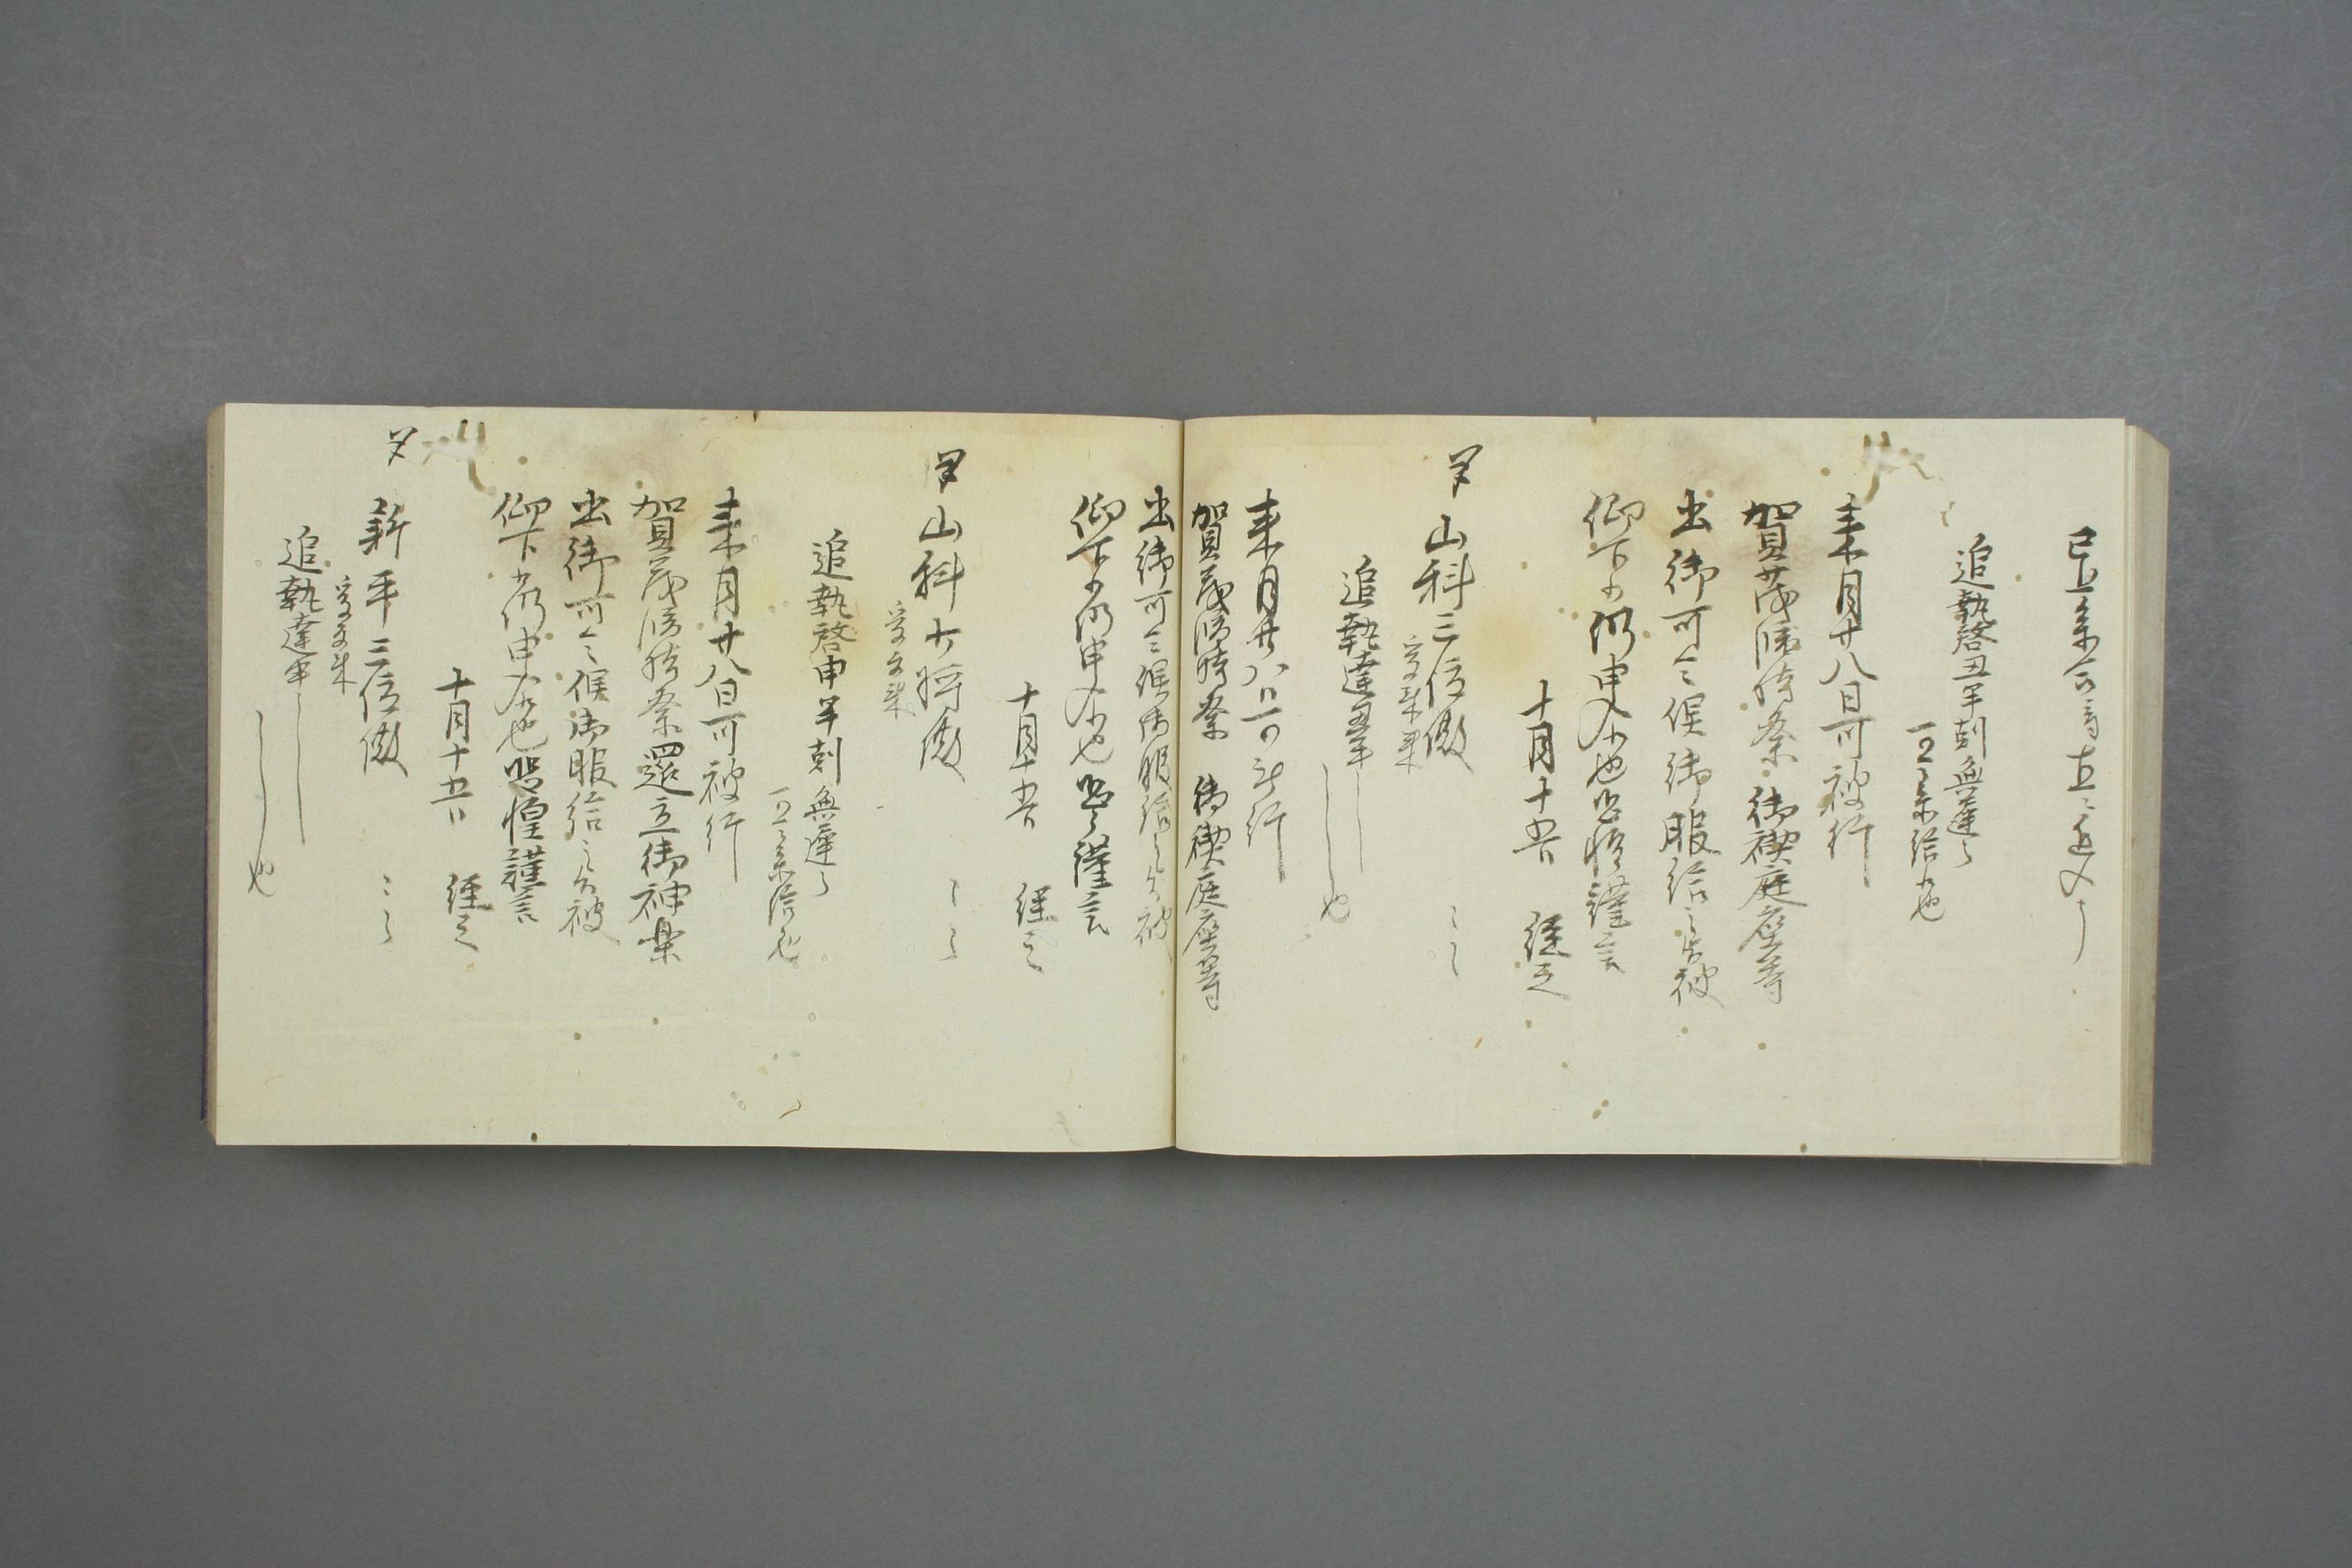 追執啓丑半刻無遅々
可令参給也
来月廿八日可被行
賀茂臨時祭御禊庭座等
出御可令候御服給之旨被
仰下候仍申入候也恐惶謹言
十月十五日 経之
山科三位殿
追執達丑半
也
来月廿八日可被行
賀茂臨時祭 御禊庭座等
出御可令候御服給之旨被
仰下候仍申入候也恐々謹言
十月十五日 経之
山科少将殿
追執啓申半刻無遅々
可令参給候也
来月廿八日可被行
賀茂臨時祭還立御神楽
出御可令候御服給之旨被
仰下候仍申入候也恐惶謹言
十月十五日 経之
新平三位殿
追執達申
也